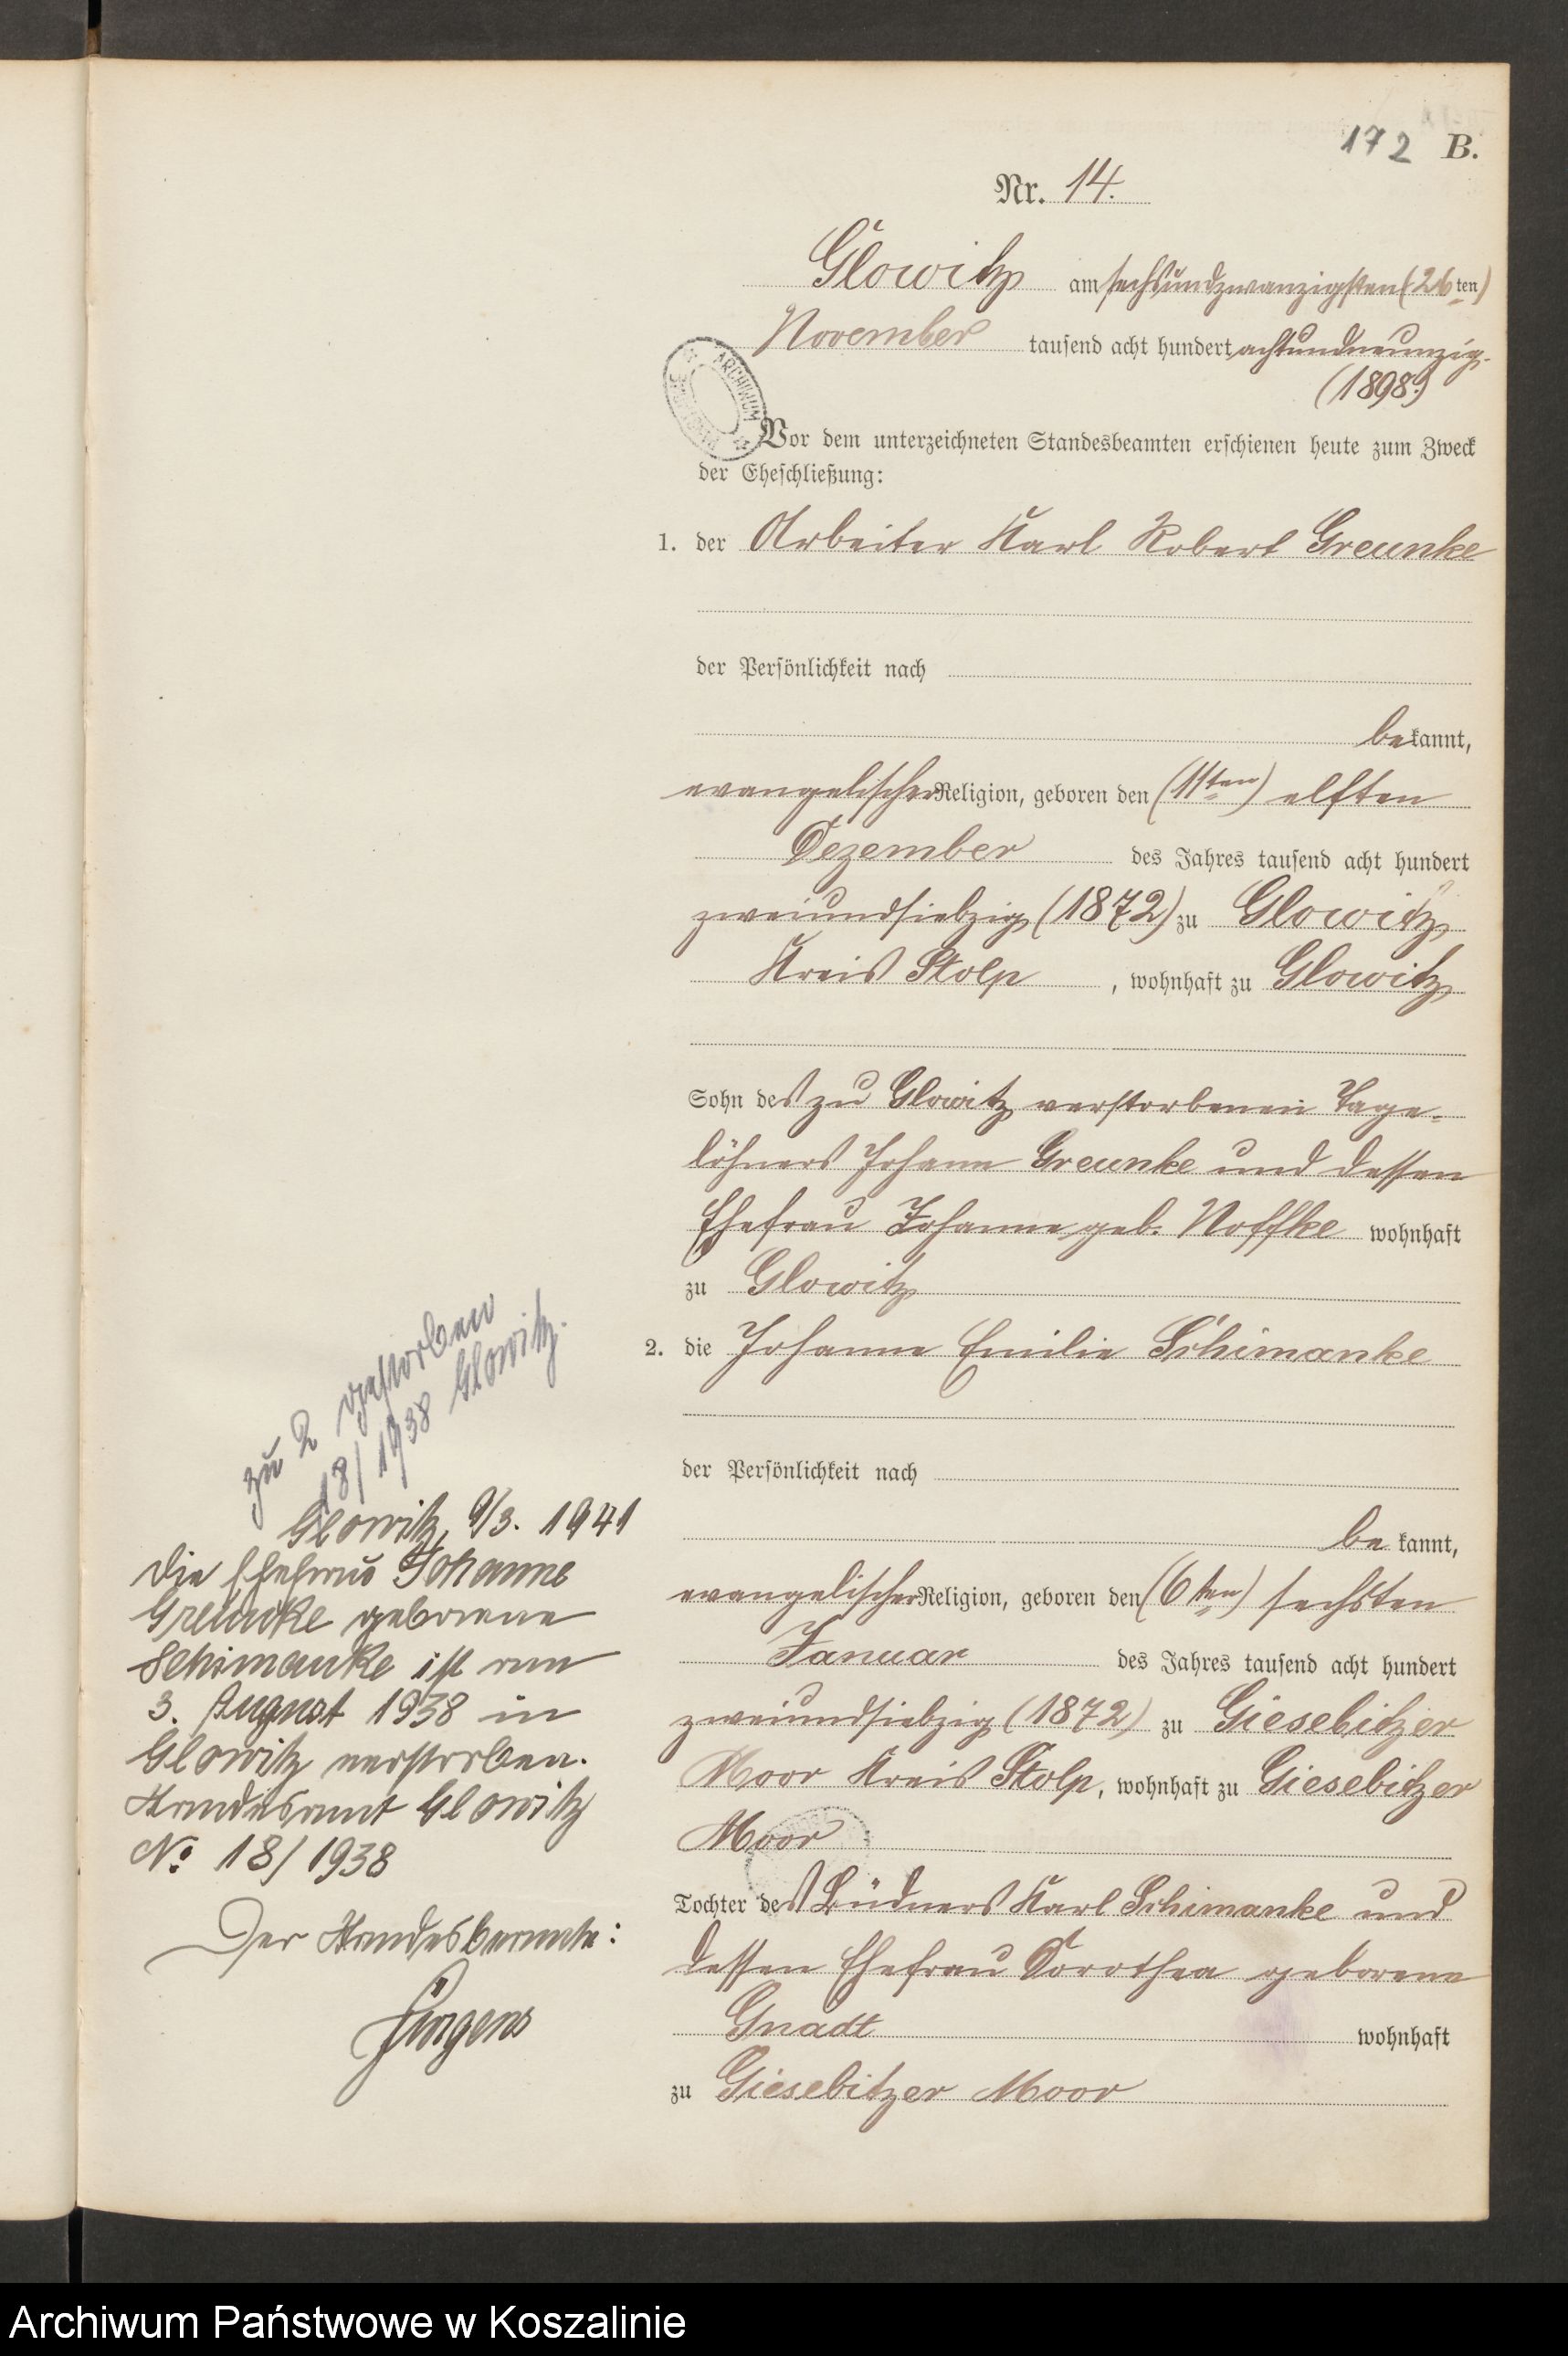 172 B.
Nr. 14.
Glowitz am sechsundzwanzigsten (26ten)
November tausend acht hundert achtundneunzig.
(1898.)
ARCHIWUM
Vor dem unterzeichneten Standesbeamten erschienen heute zum Zweck
der Eheschließung:
1. der Arbeiter Karl Robert Greunke
der Persönlichkeit nach
bekannt,
evangelischer Religion, geboren den (11ten) elften
Dezember des Jahres tausend acht hundert
zweiundsiebzig (1872) zu Glowitz
Kreis Stolp, wohnhaft zu Glowitz
Sohn des zu Glowitz verstorbenen Tage-
löhners Johann Greunke und dessen
Ehefrau Johanne geb. Noffke wohnhaft
zu Glowitz
2. die Johanne Emilie Schimanke
der Persönlichkeit nach
bekannt,
evangelischer Religion, geboren den (6ten) sechsten
Januar des Jahres tausend acht hundert
zweiundsiebzig (1872) zu Giesebitzer
Moor Kreis Stolp, wohnhaft zu Giesebitzer
Moor
Tochter des Büdners Karl Schimanke und
dessen Ehefrau Dorothea geborene
Gnadt wohnhaft
zu Giesebitzer Moor
zu 2 gestorben
18/1938 Glowitz.
Glowitz, 9/3. 1941
Die Ehefrau Johanne
Greunke geborene
Schimanke ist am
3. August 1938 in
Glowitz verstorben.
Standesamt Glowitz
No 18/1938
Der Standesbeamte:
Jürgens
Archiwum Państwowe w Koszalinie